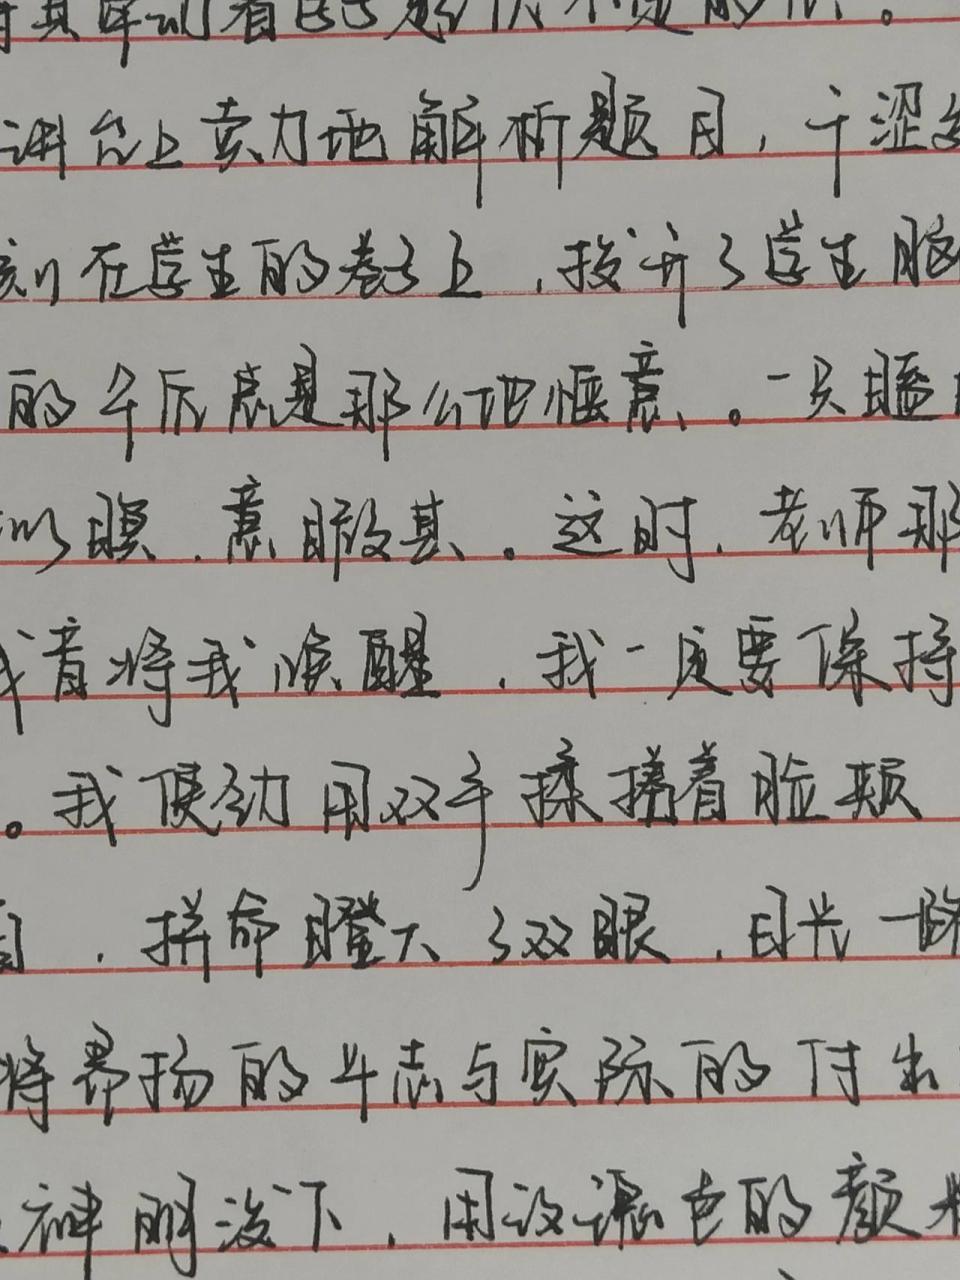 讲台上卖力地解析题目，干涩
刻在学生的卷子上，拨开了学生脑
的午后总是那么地惬意。一只瞌
以暝，意暇放其。这时，老师那
声音将我唤醒，我一定要保持
。我使劲用双手揉搓着脸颊
，拼命瞪大了双眼，目光一
将昂扬的斗志与实际的付出
神明泼下，用波澜色的颜料